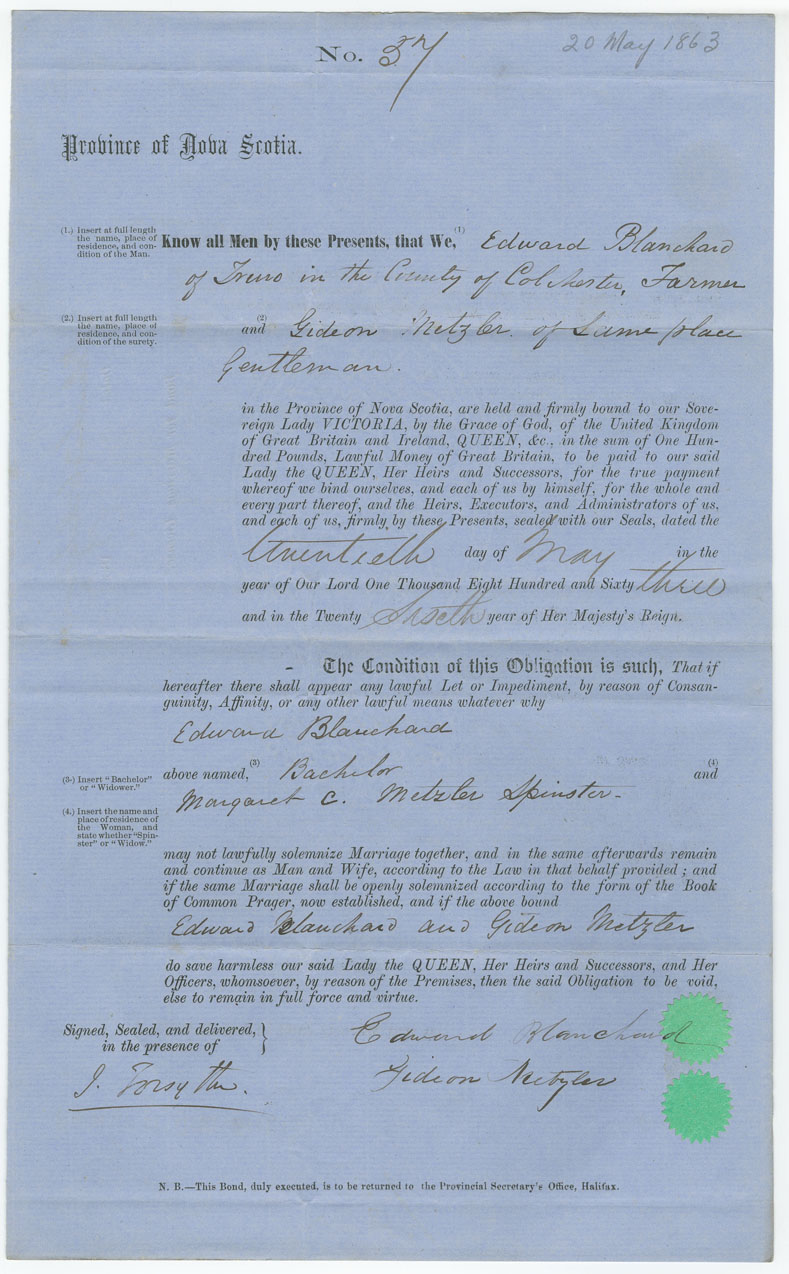 No. 37
20 May 1863
Province of Nova Scotia.
(1.) Insert at full length
the name, place of
residence, and con-
dition of the Man.
Know all Men by these Presents, that We, (1) Edward Blanchard
of Truro in the County of Colchester, Farmer
(2.) Insert at full length
the name, place of
residence, and con-
dition of the surety.
and (2) Gideon Metzler of Same place
Gentleman.
in the Province of Nova Scotia, are held and firmly bound to our Sove-
reign Lady VICTORIA, by the Grace of God, of the United Kingdom
of Great Britain and Ireland, QUEEN, &c., in the sum of One Hun-
dred Pounds, Lawful Money of Great Britain, to be paid to our said
Lady the QUEEN, Her Heirs and Successors, for the true payment
whereof we bind ourselves, and each of us by himself, for the whole and
every part thereof, and the Heirs, Executors, and Administrators of us,
and each of us, firmly by these Presents, sealed with our Seals, dated the
twentieth day of May in the
year of Our Lord One Thousand Eight Hundred and Sixty three
and in the Twenty Sixth year of Her Majesty's Reign.
- The Condition of this Obligation is such, That if
hereafter there shall appear any lawful Let or Impediment, by reason of Consan-
guinity, Affinity, or any other lawful means whatever why
Edward Blanchard
(3.) Insert "Bachelor"
or "Widower."
above named, (3) Bachelor and (4)
Margaret C. Metzler Spinster-
(4.) Insert the name and
place of residence of
the Woman, and
state whether "Spin-
ster" or "Widow."
may not lawfully solemnize Marriage together, and in the same afterwards remain
and continue as Man and Wife, according to the Law in that behalf provided; and
if the same Marriage shall be openly solemnized according to the form of the Book
of Common Prager, now established, and if the above bound
Edward Blanchard and Gideon Metzler
do save harmless our said Lady the QUEEN, Her Heirs and Successors, and Her
Officers, whomsoever, by reason of the Premises, then the said Obligation to be void,
else to remain in full force and virtue.
Signed, Sealed, and delivered, }
in the presence of
Edward Blanchard
J. Forsythe.
Gideon Metzler
N. B.—This Bond, duly executed, is to be returned to the Provincial Secretary's Office, Halifax.